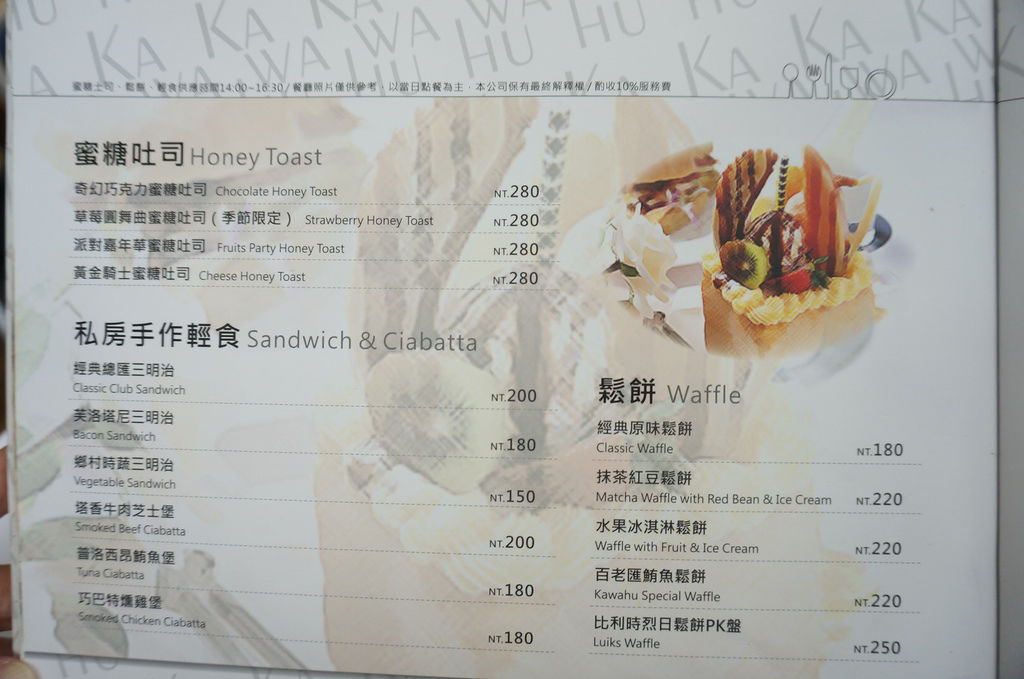 KA WA HU KA WA HU KA WA HU
蜜糖土司、鬆餅、輕食供應時間14:00~16:30 / 餐廳照片僅供參考，以當日點餐為主，本公司保有最終解釋權 / 酌收10%服務費
蜜糖吐司 Honey Toast
奇幻巧克力蜜糖吐司 Chocolate Honey Toast NT.280
草莓圓舞曲蜜糖吐司 ( 季節限定 ) Strawberry Honey Toast NT.280
派對嘉年華蜜糖吐司 Fruits Party Honey Toast NT.280
黃金騎士蜜糖吐司 Cheese Honey Toast NT.280
私房手作輕食 Sandwich & Ciabatta
經典總匯三明治
Classic Club Sandwich NT.200
芙洛塔尼三明治
Bacon Sandwich NT.180
鄉村時蔬三明治
Vegetable Sandwich NT.150
塔香牛肉芝士堡
Smoked Beef Ciabatta NT.200
普洛西昂鮪魚堡
Tuna Ciabatta NT.180
巧巴特燻雞堡
Smoked Chicken Ciabatta NT.180
鬆餅 Waffle
經典原味鬆餅
Classic Waffle NT.180
抹茶紅豆鬆餅
Matcha Waffle with Red Bean & Ice Cream NT.220
水果冰淇淋鬆餅
Waffle with Fruit & Ice Cream NT.220
百老匯鮪魚鬆餅
Kawahu Special Waffle NT.220
比利時烈日鬆餅PK盤
Luiks Waffle NT.250
HU